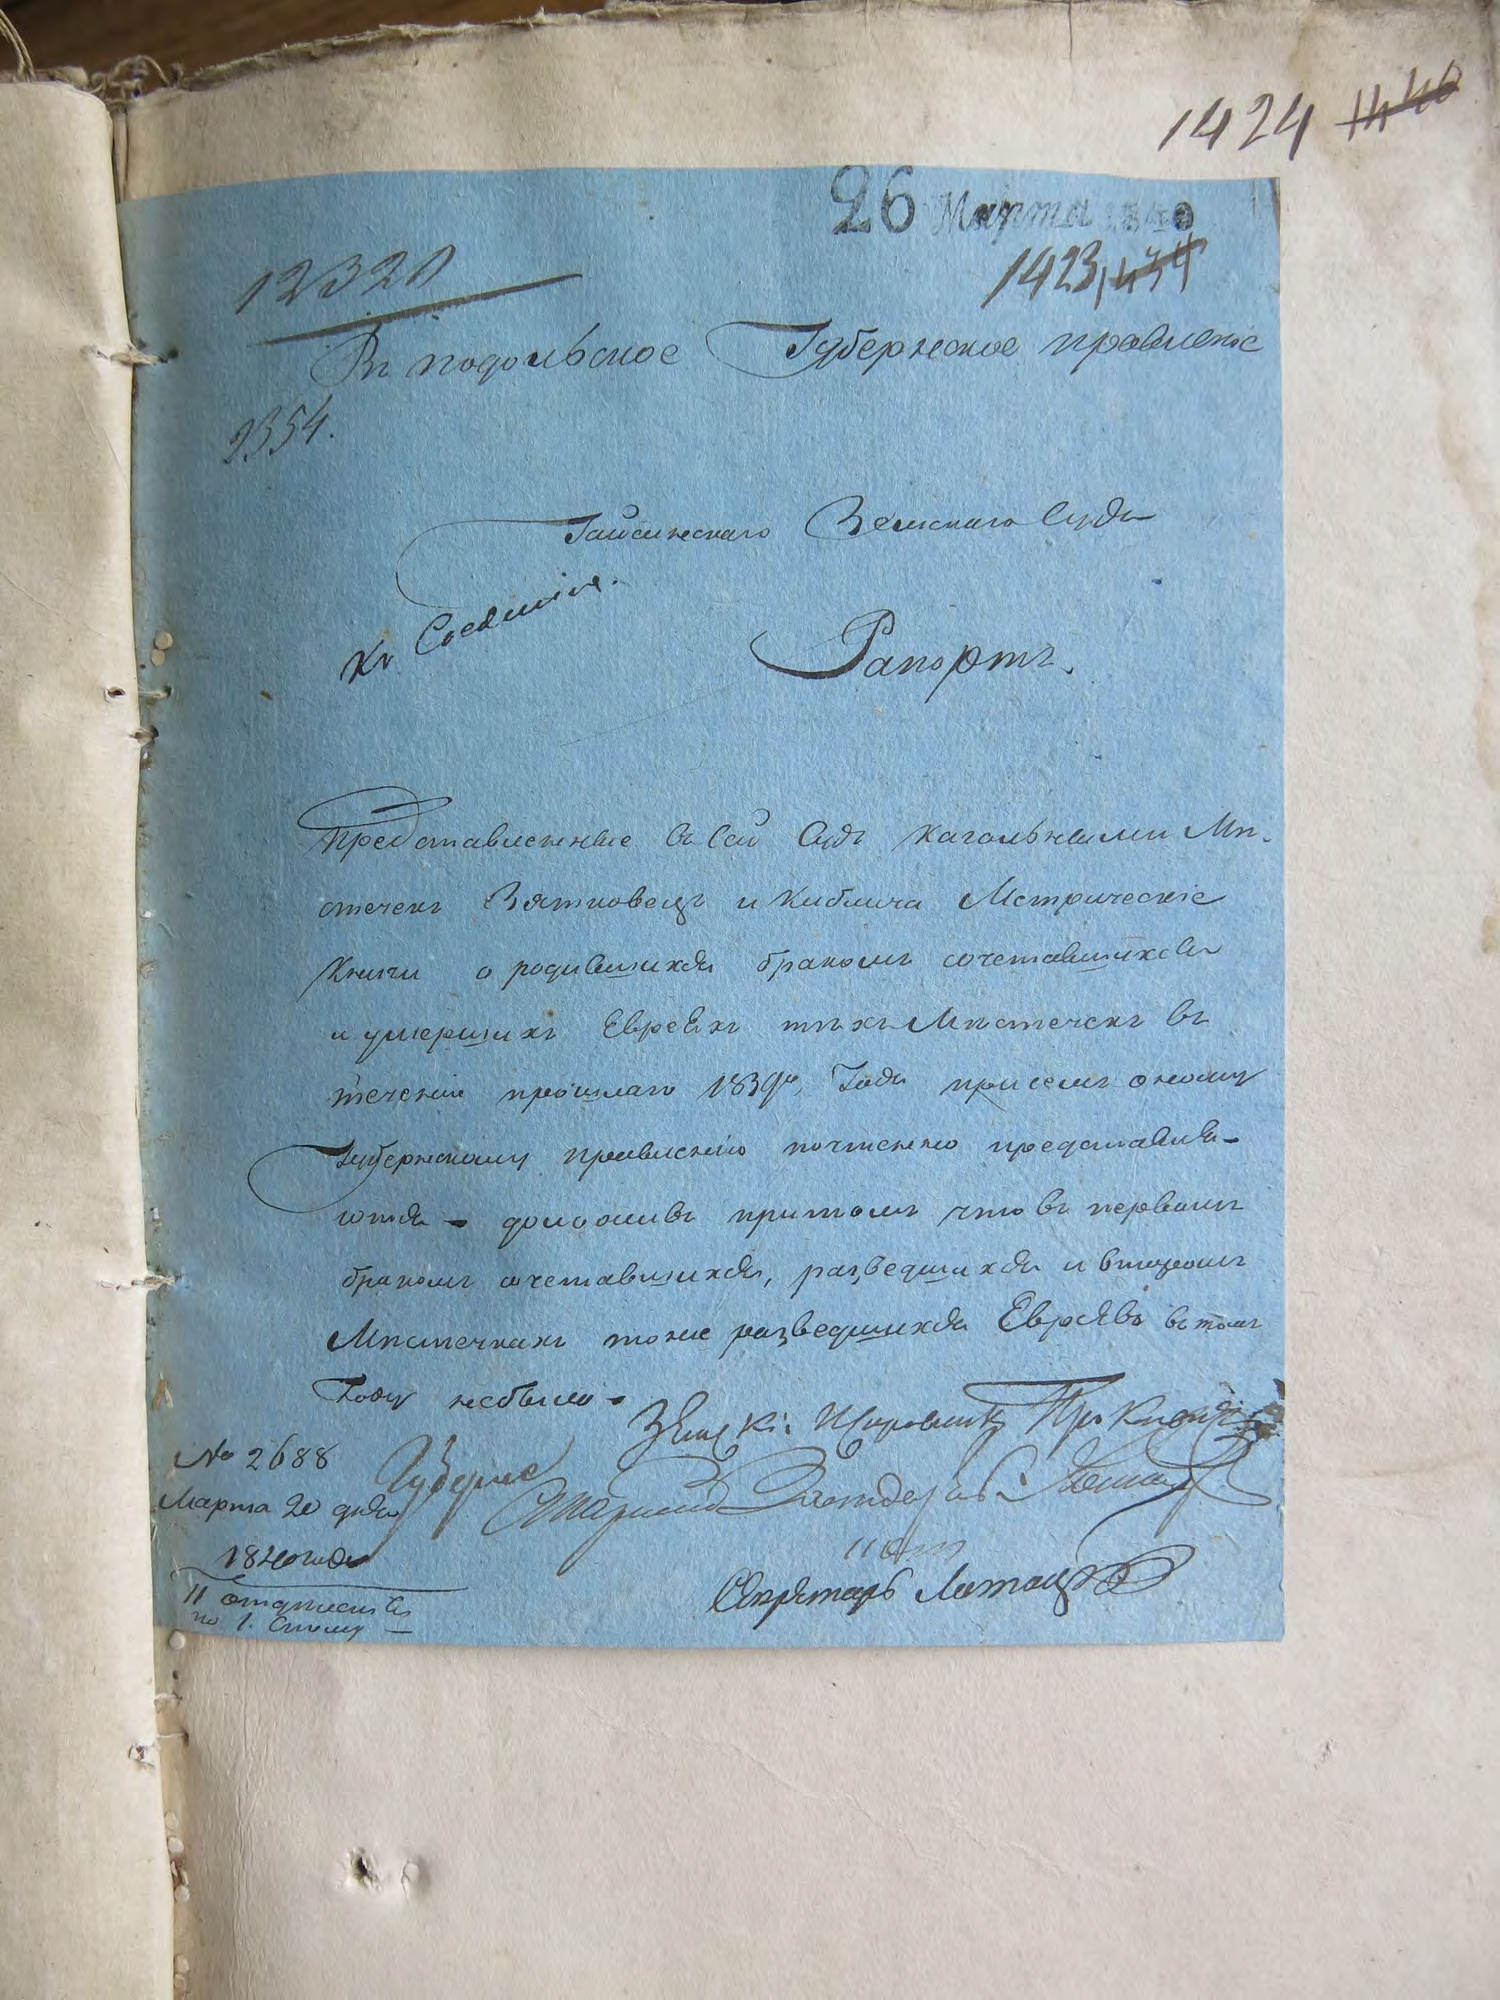 1424
26 Марта 1840
12320
1423
Въ подольское Губернское правленіе
2354.
Гайсинскаго Земскаго Суда
Къ Соединенію.
Рапортъ.
Представленные въ Сей Судъ Кагальными Мѣ-
стечекъ Зятковецъ и Кублича Метрическіе
Книги о родившихся бракомъ сочетавшихся
и умершихъ Евреяхъ тѣхъ Мѣстечекъ въ
теченіи прошлаго 1839го Года при семъ оному
Губернскому правленію почтенно представля-
ются – доложивъ притомъ что въ первомъ
бракомъ сочетавшихся, разведшихся и в второмъ
Мѣстечкахъ тоже разведшихся Евреевъ въ томъ
Году небыло –
Земскій Исправникъ
№ 2688
Марта 20 дня
1840 года
Секретарь
II отдѣленія
по 1. Столу